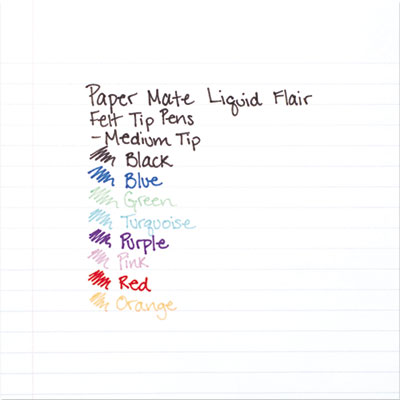 Paper Mate Liquid Flair
Felt Tip Pens
- Medium Tip
Black
Blue
Green
Turquoise
Purple
Pink
Red
Orange